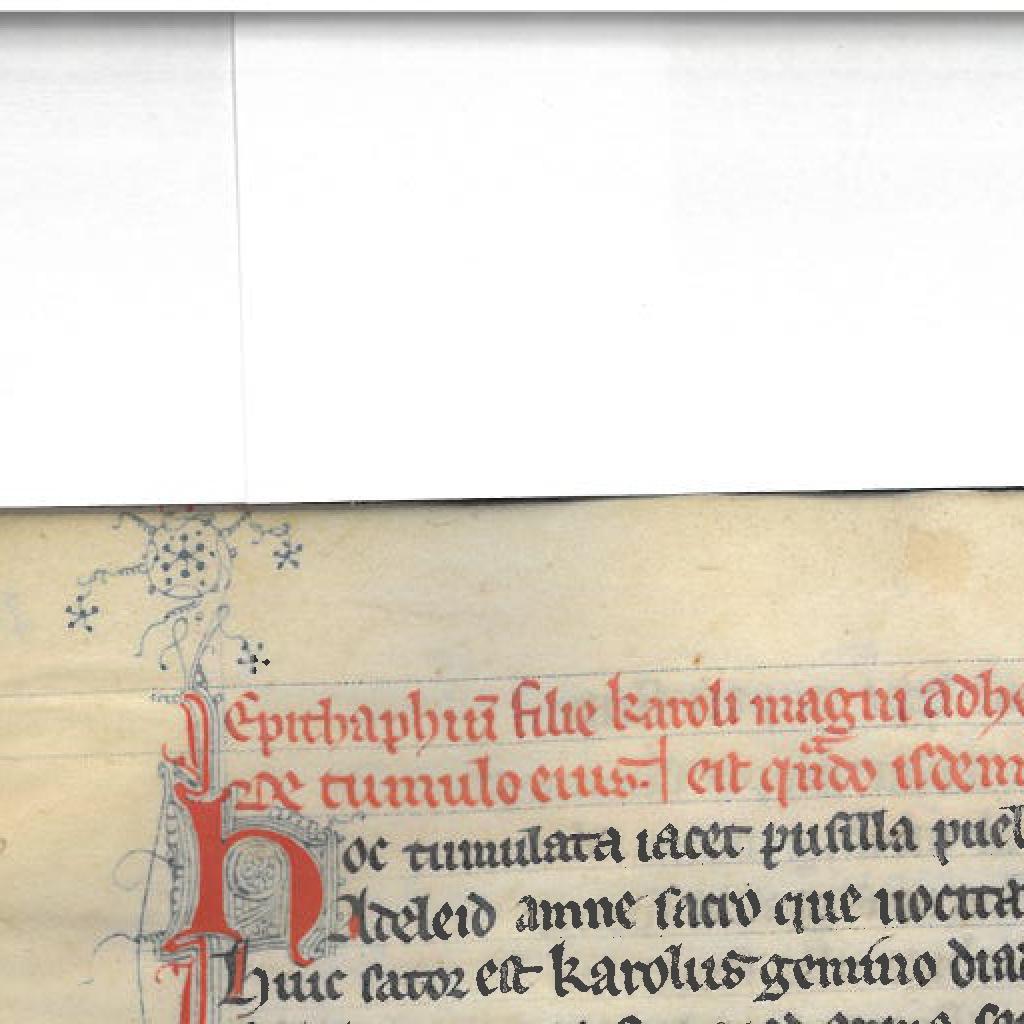 Epithaphiū filie karoli magni adhe
De tumulo eius. est qn̄do isdem
Hoc tumulata iacet pusilla puel
Adeleid amne sacro que uocita
Huic sator est karolus gemino dia